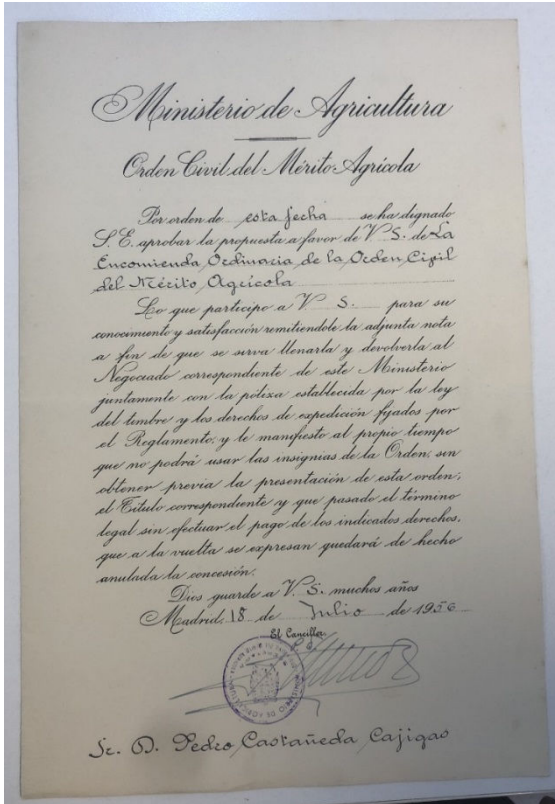 Ministerio de Agricultura
Orden Civil del Mérito Agrícola
Por orden de esta fecha se ha dignado
S. E. aprobar la propuesta a favor de V. S. de La
Encomienda Ordinaria de la Orden Civil
del Mérito Agrícola
Lo que participo a V. S. para su
conocimiento y satisfacción remitiendole la adjunta nota
a fin de que se sirva llenarla y devolverla al
Negociado correspondiente de este Ministerio
juntamente con la póliza establecida por la ley
del timbre y los derechos de expedición fijados por
el Reglamento; y le manifiesto al propio tiempo
que no podrá usar las insignias de la Orden, sin
obtener previa la presentación de esta orden;
el Título correspondiente y que pasado el término
legal sin efectuar el pago de los indicados derechos,
que a la vuelta se expresan quedará de hecho
anulada la concesión.
Dios guarde a V. S. muchos años
Madrid, 18 de Julio de 1956
El Canciller
Sr. D. Pedro Castañeda Cajigas